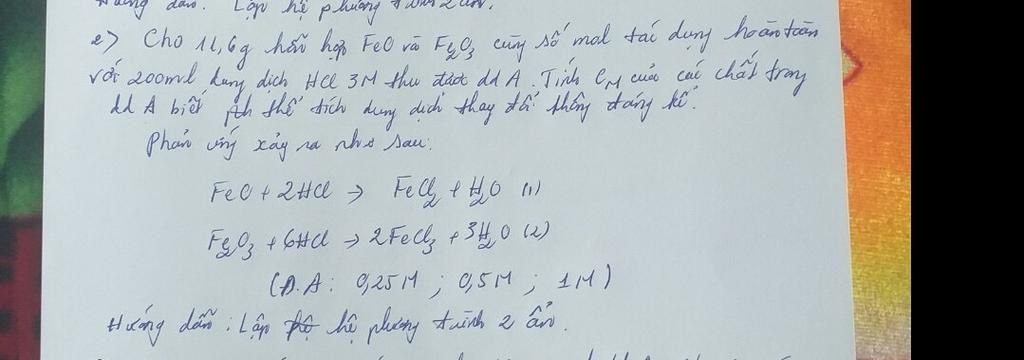 Hướng dẫn: Lập hệ phương trình 2 ẩn.
2) Cho 11,6g hỗn hợp FeO và Fe2O3 cùng số mol tác dụng hoàn toàn
với 200ml dung dịch HCl 3M thu được dd A. Tính CM của các chất trong
dd A biết thể tích dung dịch thay đổi không đáng kể.
Phản ứng xảy ra như sau:
FeO + 2HCl → FeCl2 + H2O (1)
Fe2O3 + 6HCl → 2FeCl3 + 3H2O (2)
(Đ.A: 0,25M ; 0,5M ; 1M)
Hướng dẫn: Lập hệ phương trình 2 ẩn.